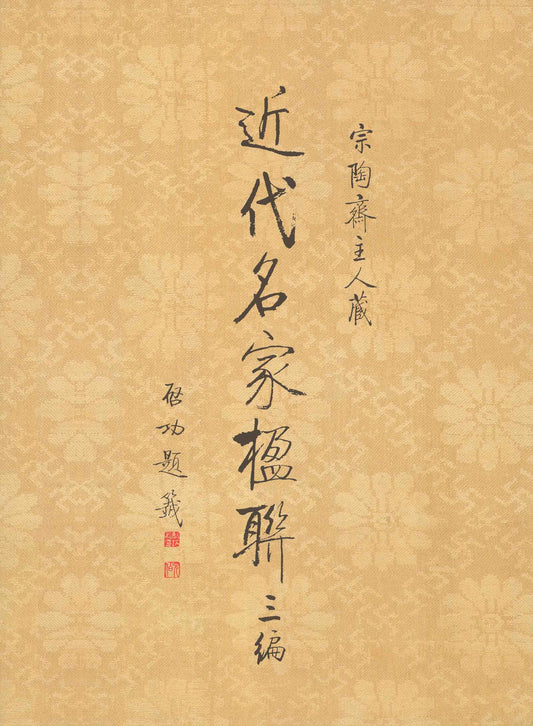 宗陶齋主人藏
近代名家楹聯三编
启功題籤